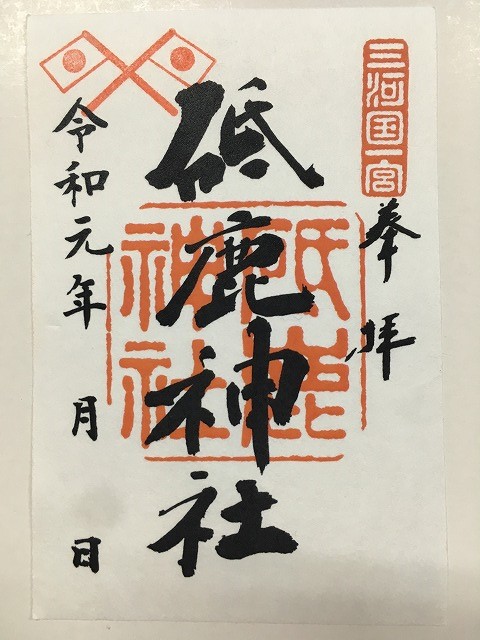 三河国一宮
奉拝
砥鹿神社
砥鹿
神社
令和元年 月 日